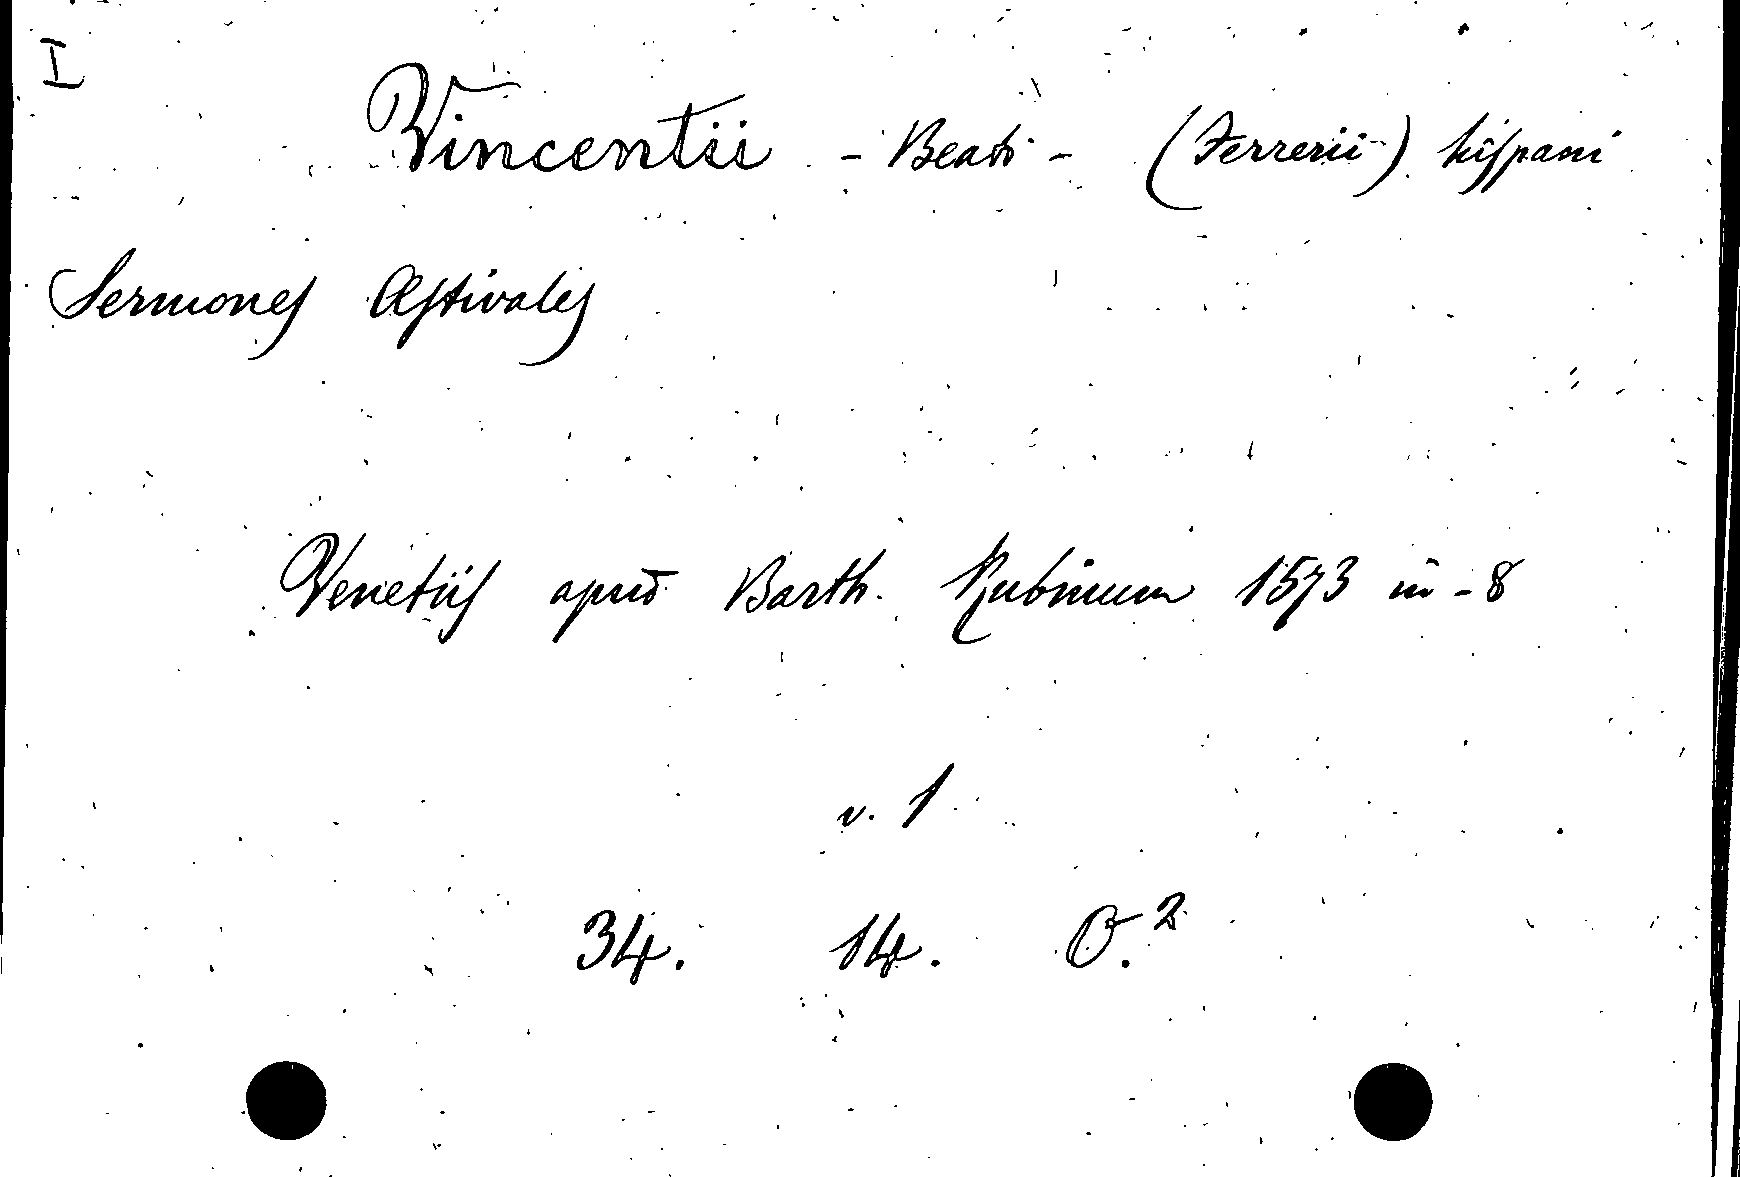 I
Vincentii - Beati - (Ferrerii) hispani
Sermones Æstivales
Venetiis apud Barth. Rubinum 1573 in-8
v. 1
34. 14. O.²